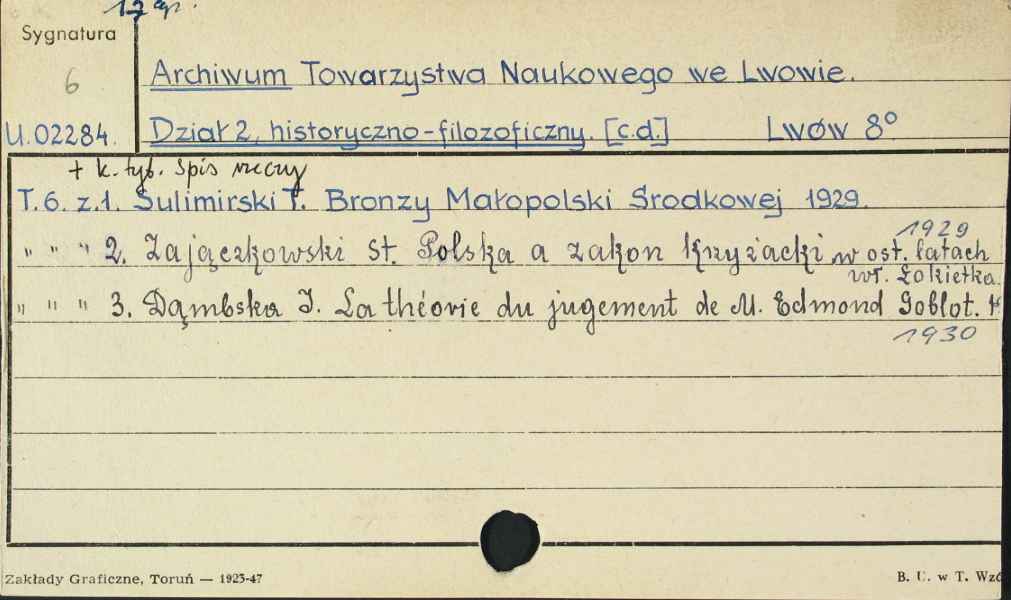 17 egz.
Sygnatura
6
Archiwum Towarzystwa Naukowego we Lwowie.
U.02284. Dział 2, historyczno-filozoficzny. [c.d.] Lwów 8°
+ k. tyt. Spis rzeczy
T. 6. z.1. Sulimirski T. Bronzy Małopolski Środkowej 1929.
1929
" " " 2. Zajączkowski St. Polska a zakon krzyżacki w ost. latach
wł. Łokietka.
" " " 3. Dąmbska I. La théorie du jugement de M. Edmond Goblot.
1930
Zakłady Graficzne, Toruń — 1923-47
B. U. w T. Wzó